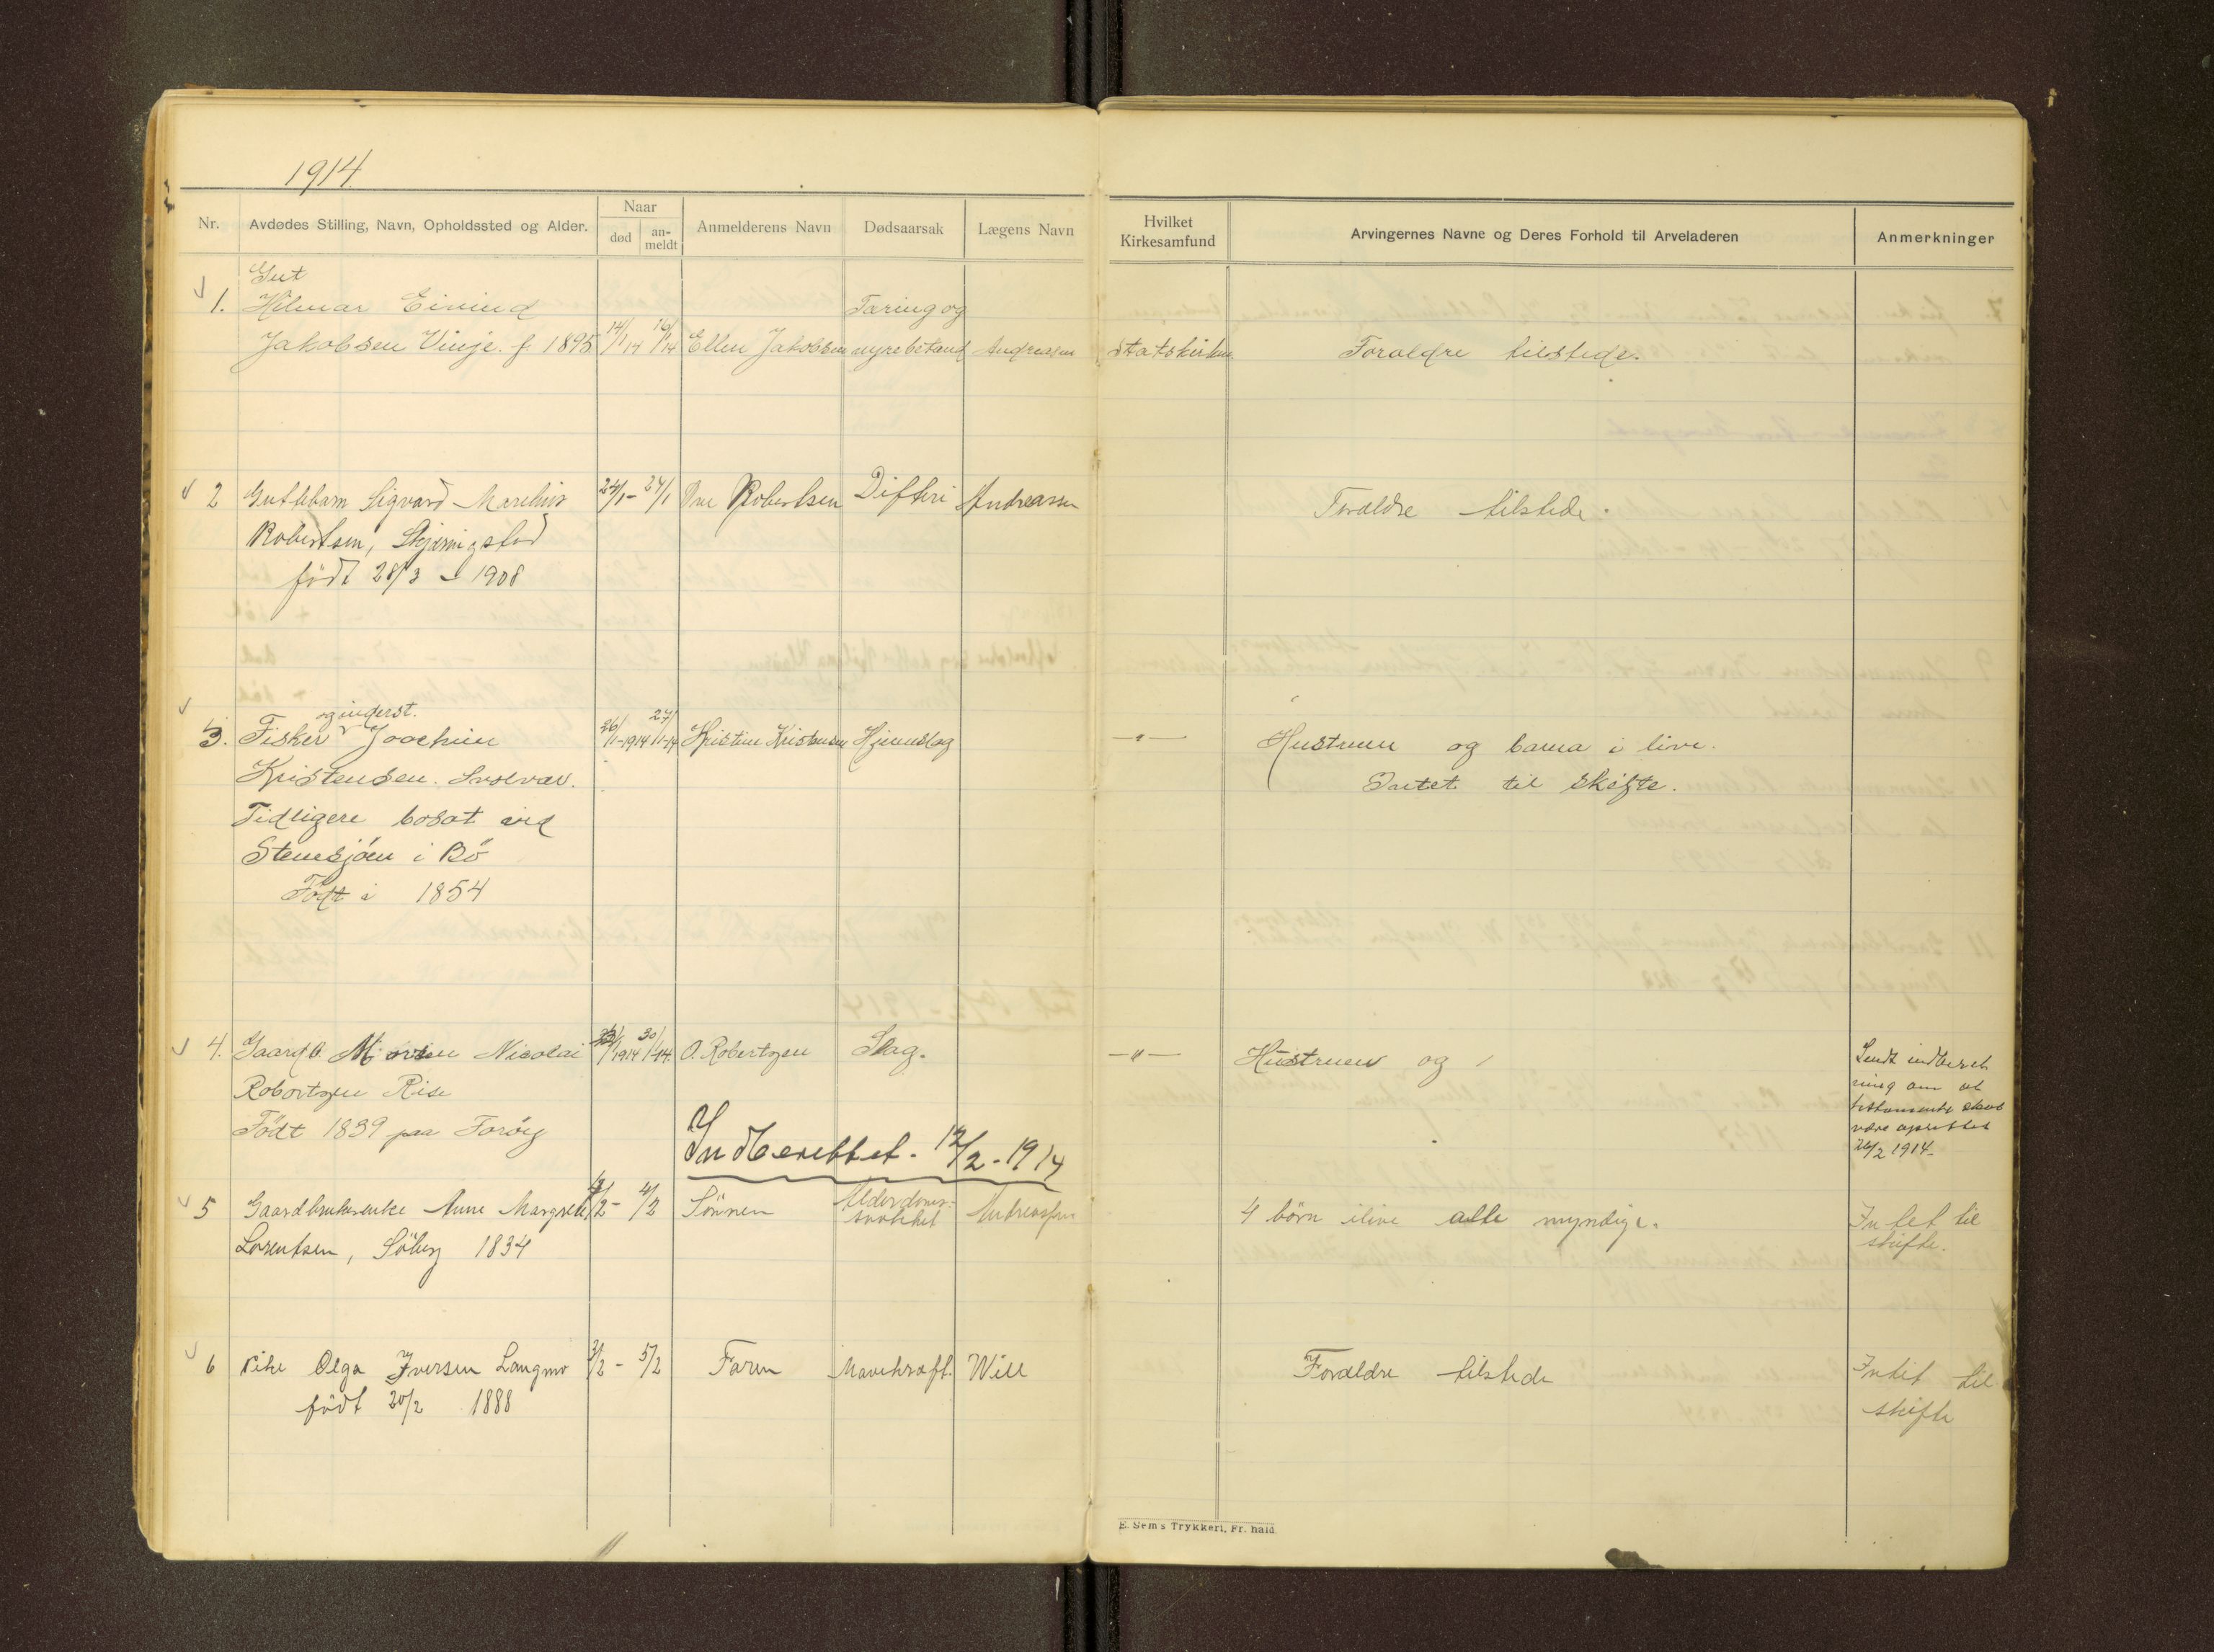 1914
Nr.
Avdødes Stilling, Navn, Opholdssted og Alder.
Naar
død
an-
meldt
Anmelderens Navn
Dødsaarsak
Lægens Navn
Hvilket
Kirkesamfund
Arvingernes Navne og Deres Forhold til Arveladeren
Anmerkninger
Gut
1. Hilmar Eivind Tæring og
Jakobsen Vinje. f. 1895 14/1 14 16/1 14 Ellen Jakobsen nyrebetænd Andreassen Statskirken Forældre tilstede.
2 Guttebarn Sigvard Marelius 24/1 - 24/1 Robertsen Difteri Andreassen Forældre tilstede.
Robertsen, Skjørnigstad
født 28/3 - 1908
og inderst.
3. Fisker Joachim 26/1-1914 27/1-14 Kristine Kristensen Hjerneslag -"- Hustruen og barna i live.
Kristensen. Svolvær. Intet til skifte.
Tidligere bosat ved
Stensjøen i Bö
Født i 1854
4. Gaardb. Morten Nicolai 1914 30/1-14. O. Robertsen Slag. -"- Hustruen og
Robertsen Rise
Födt 1839 paa
Sendt indberet
ning om at
testamente skal
være oprettet
1914
Indberettet. 12/2 - 1914
5 Gaardbrukerenke Anne Margrete 3/2 - 4/2 Sönnen Alderdoms-
svakhet Andreassen 4 börn ilive alle myndige. Intet til
skifte.
Lorentsen, Söberg 1834
6 Pike Olga Iversen Langmo 3/2 - 5/2 Faren Mavekræft. Will Forældre tilstede Intet til
skifte
født 20/2 1888
E. Sem's Trykkeri, Fr.hald